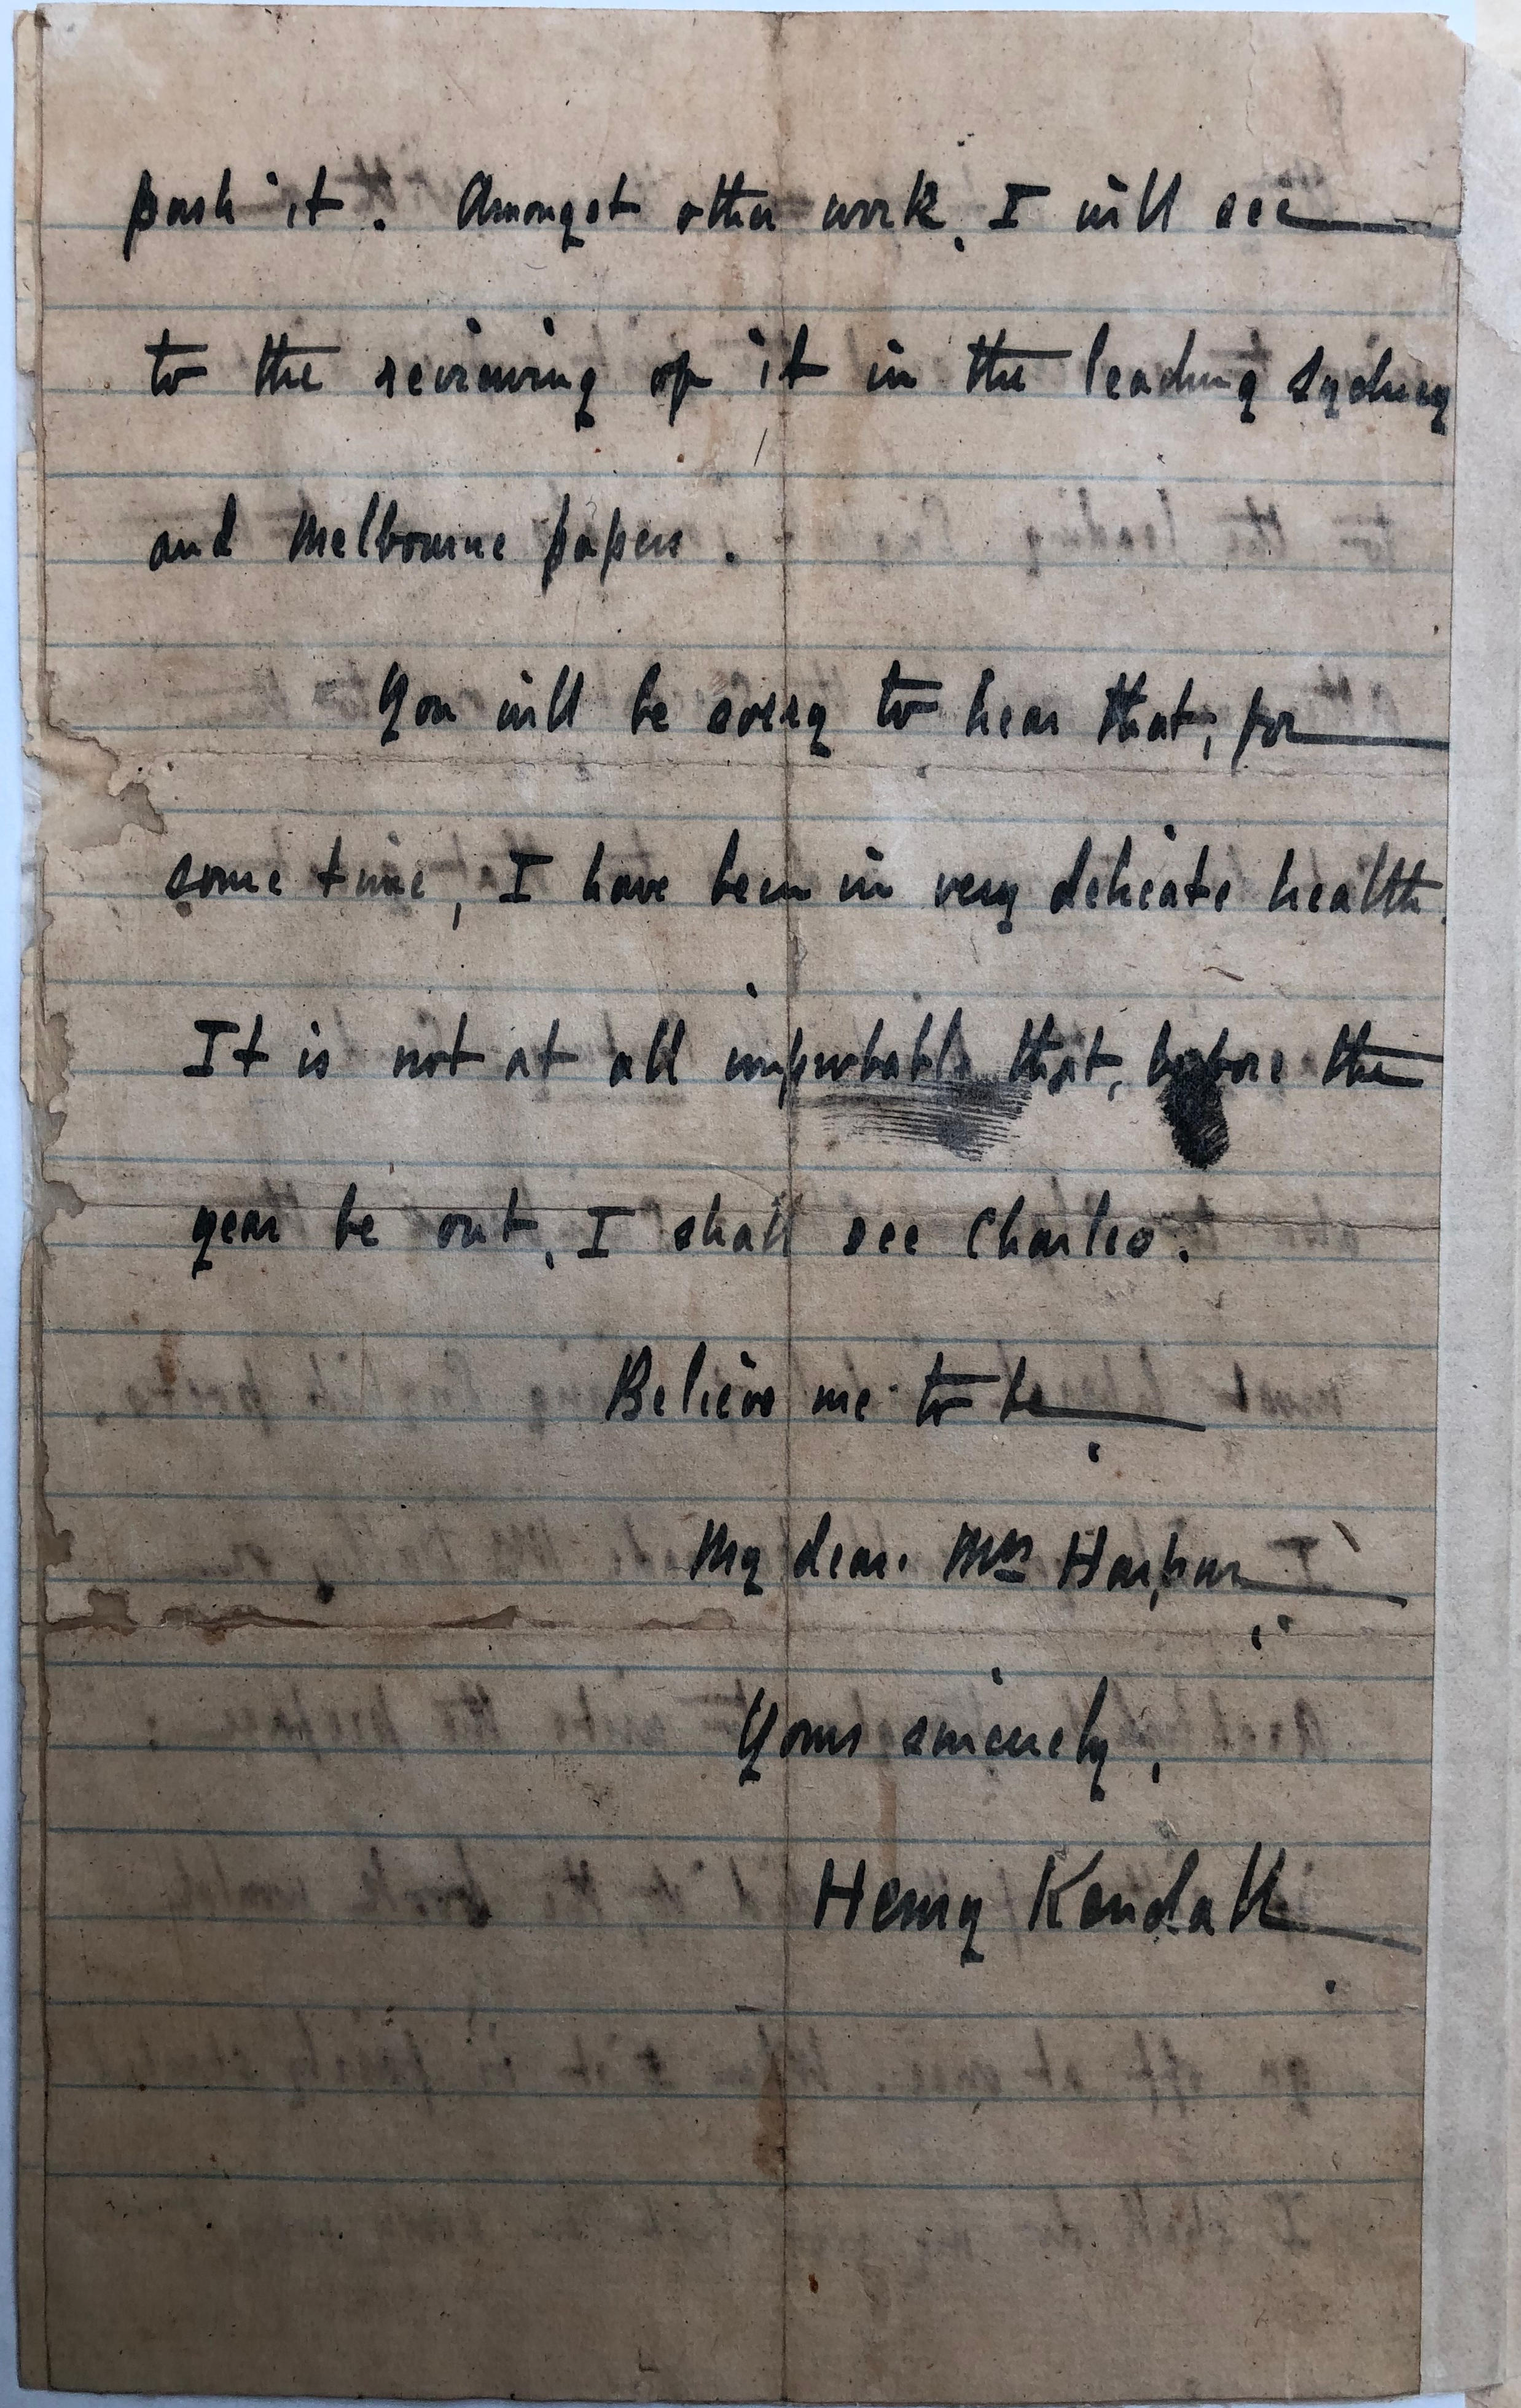 push it. Amongst other work, I will see
to the reviewing of it in the leading Sydney
and Melbourne papers.
You will be sorry to hear that, for
some time, I have been in very delicate health.
It is not at all improbable that, before the
year be out, I shall see Charles.
Believe me to be
My dear Mrs Harpur
Yours sincerely,
Henry Kendall